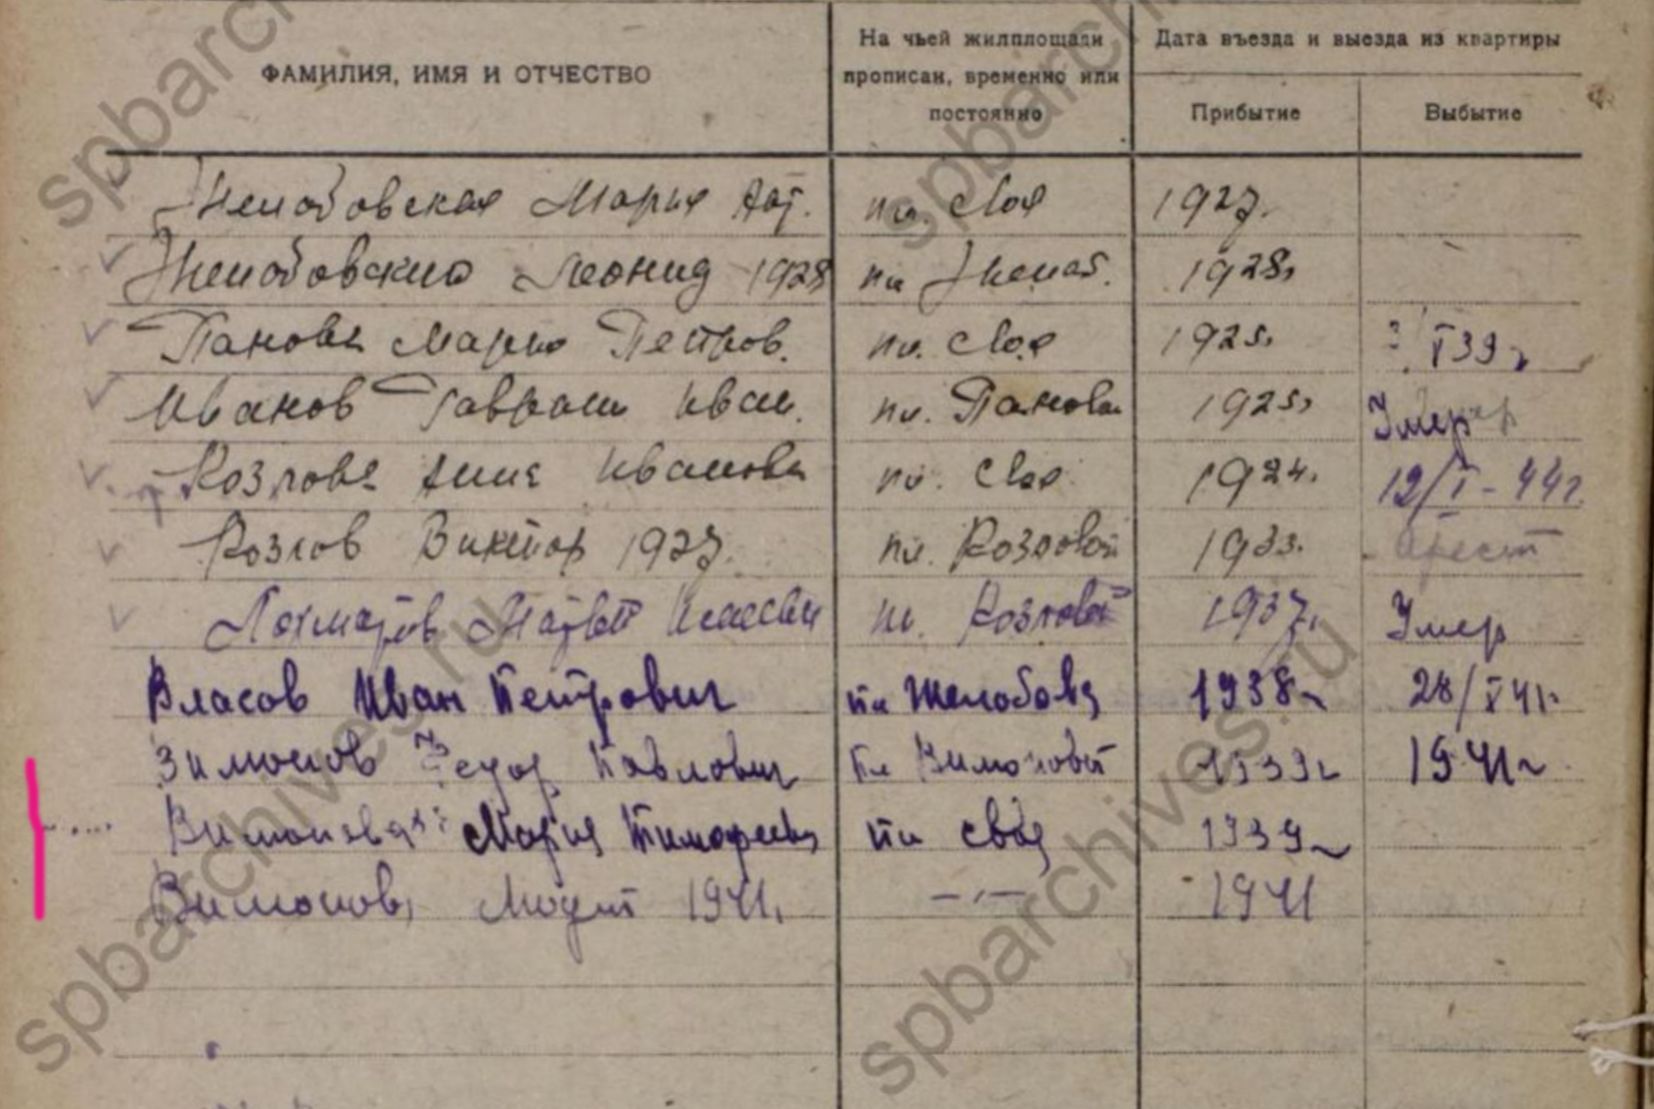 ФАМИЛИЯ, ИМЯ И ОТЧЕСТВО
На чьей жилплощади прописан, временно или постоянно
Дата въезда и выезда из квартиры
Прибытие Выбытие
Желобовская Мария пл. своя 1927.
Желобовский Леонид 1928 пл Желоб. 1928г
Панова Мария Петров. пл. своя 1925г /I 39г
Иванов Иван. пл. Панова 1925г Умер
Козлова Анна Ивановна пл. своя 1924. 12/I-44г.
Козлов Виктор 1927. пл. Козловой 1933. арест
Лохматов Матвей пл. Козловой 1937г. Умер
Власов Иван Петрович пл Желобова 1938г 28/ 41г
Зимонов Федор Павлович пл Вимоновой 1939г 1941г
Вимонова Мария Тимофеевна пл своя 1939г
Вимонов 1941. —„— 1941
spbarchives.ru
spbarchives.ru